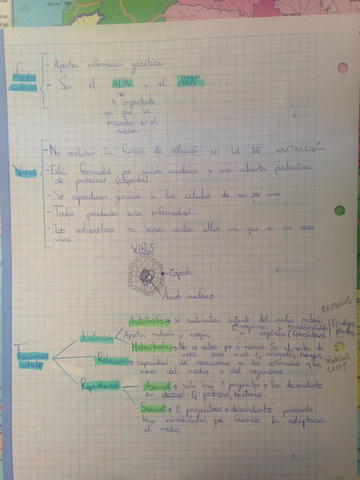 Ácidos nucleicos
- Aportan información genética.
- Son el ADN y el ARN
+ importante
ya que se
encuentra en el
núcleo
Virus
- No realizan la función de relación NI LA DE NUTRICIÓN
- Están formados por ácido nucleico y una cubierta protectora
de proteínas (cápsida).
- Se reproducen gracias a las células de un ser vivo
- Todos producen una enfermedad
- Los antibióticos no sirven contra ellos ya que no son seres
vivos
VIRUS
Cápsida
Ácido nucleico
Funciones vitales
Nutrición
Aporta materia y energía
Autótrofa → se
del medio materia
inorgánica y
orgánica (fotosíntesis)
BACTERIAS
Heterótrofa → No
por sí mismos. Se alimentan de
otros seres vivos. Ej: animales, hongos,
Relación
capacidad de reaccionar a los estímulos que
vienen del medio o del organismo.
Reproducción
Asexual → solo hay 1 progenitor y los descendientes
son idénticos. Ej: protozoos, bacterias.
Sexual → 2 progenitores → descendientes parecidos,
hay variabilidad, que favorece la adaptación
al medio.